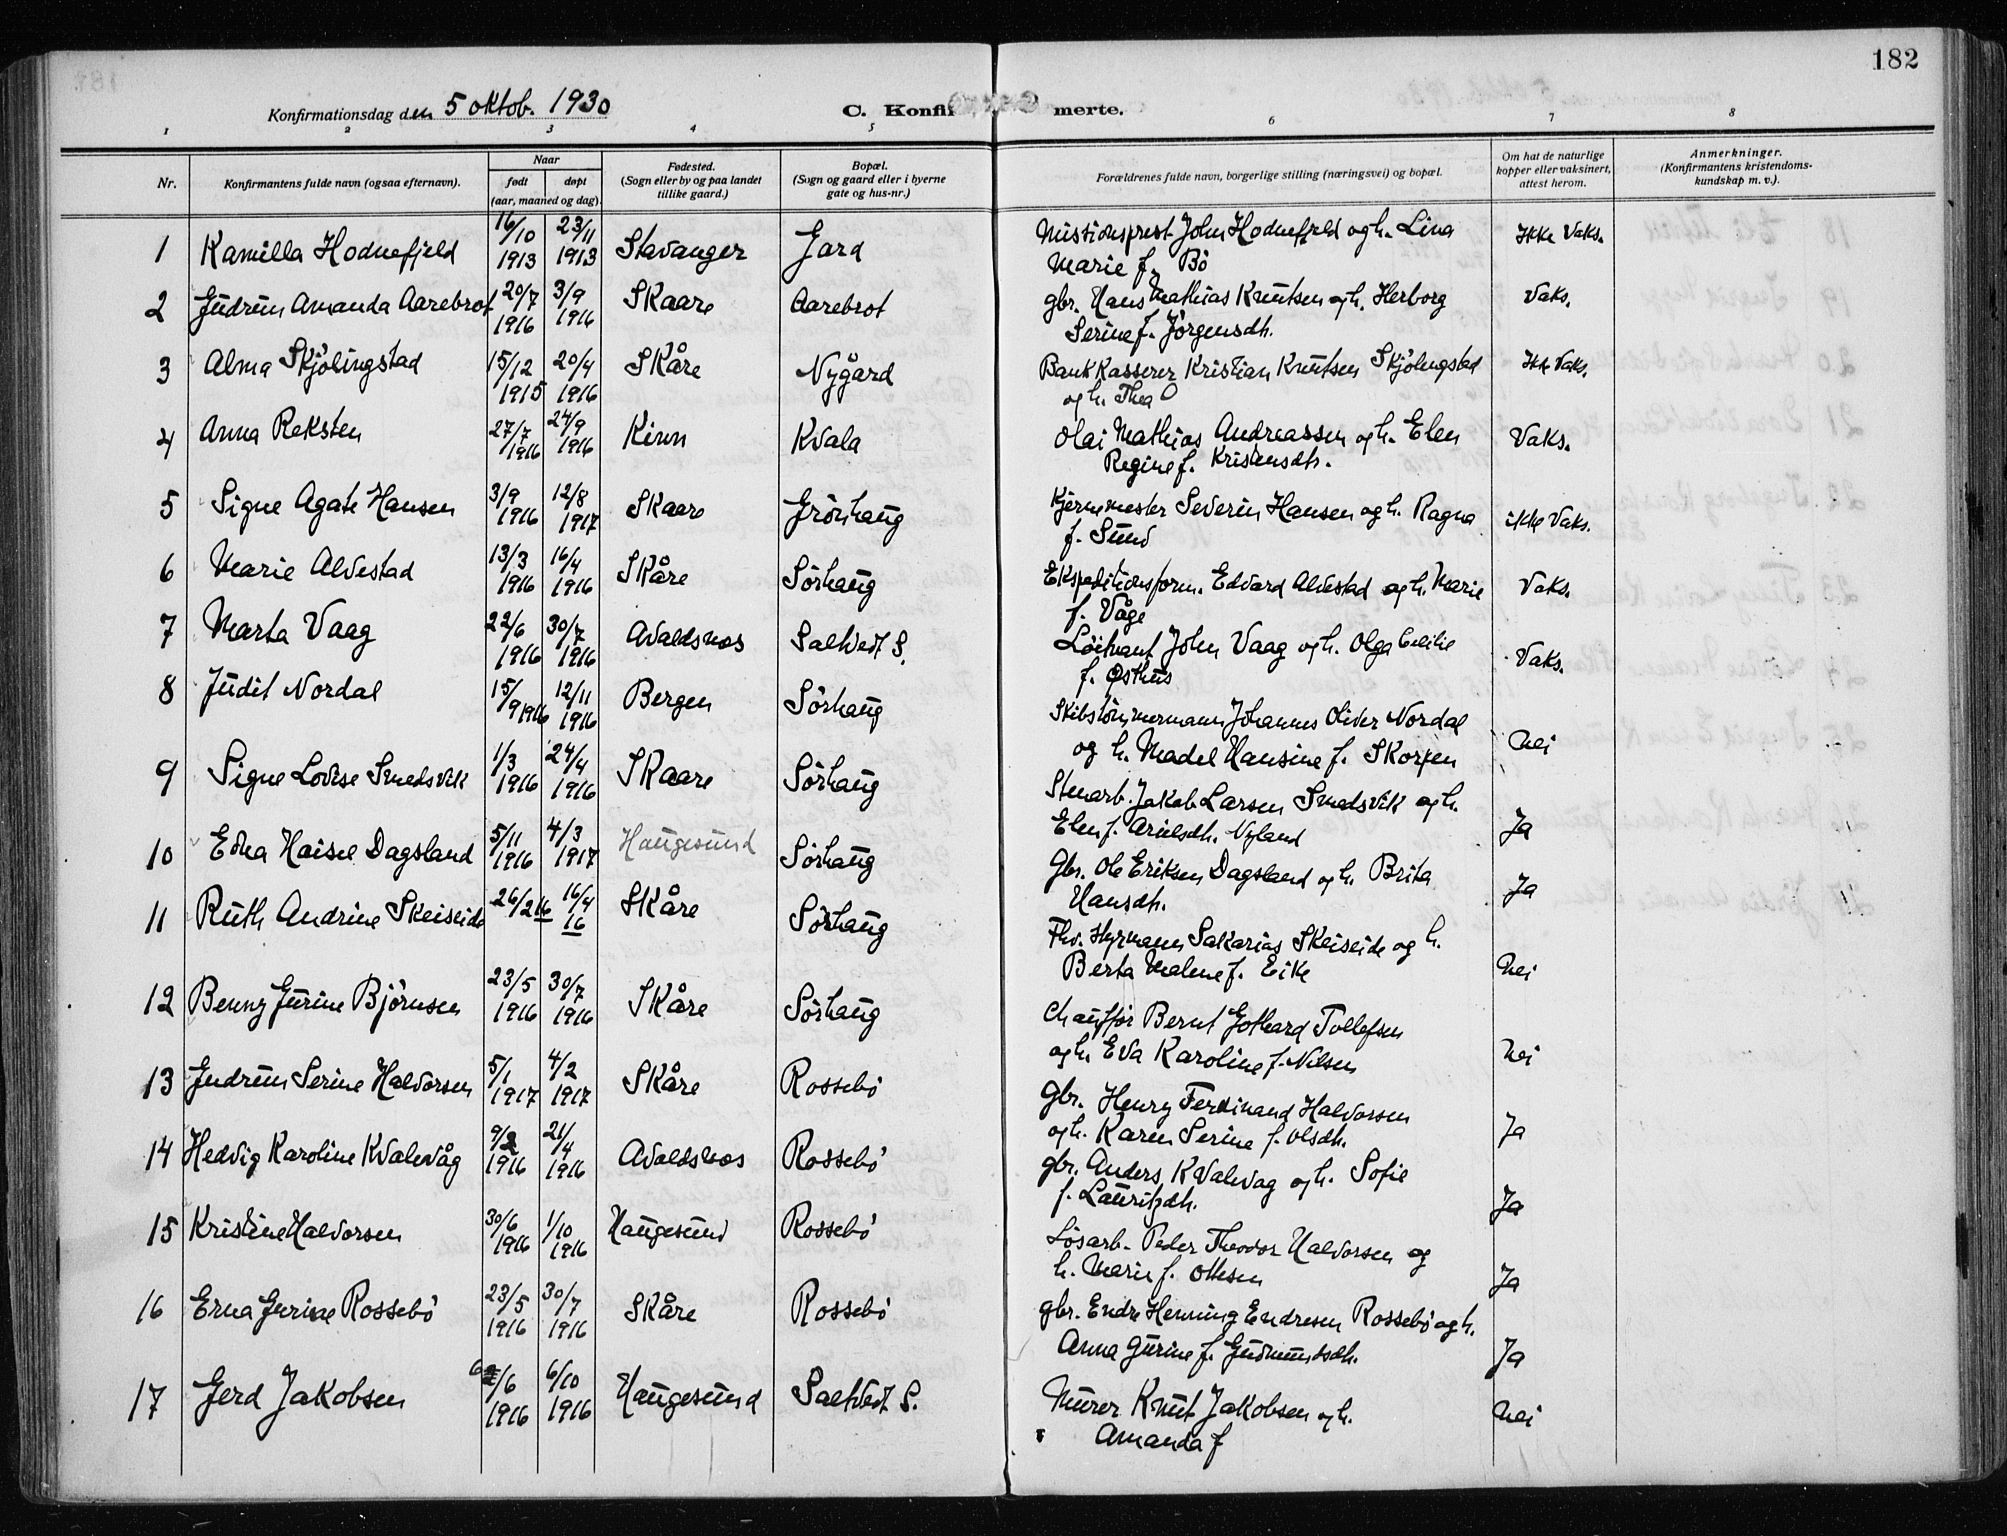 182
Konfirmationsdag den 5 oktob. 1930
C. Konfirmerte.
1 2 3 4 5 6 7 8
Nr. Konfirmantens fulde navn (ogsaa efternavn). Naar født døpt (aar, maaned og dag). Fødested. (Sogn eller by og paa landet tillike gaard.) Bopæl. (Sogn og gaard eller i byerne gate og hus-nr.) Forældrenes fulde navn, borgerlige stilling (næringsvei) og bopæl. Om hat de naturlige kopper eller vaksinert, attest herom. Anmerkninger. (Konfirmantens kristendomskundskap m. v.).
1 Kamilla Hodnefjeld 16/10 1913 23/11 1913 Stavanger Gard Missionsprest John Hodnefjeld og h. Lina Ikke Vaks.
Marie f. Bö
2 Gudrun Amanda Aarebrot 20/7 1916 3/9 1916 Skaare Aarebrot gbr. Hans Mathias Knutsen og h. Herborg Vaks.
Serine f. Jörgensdh.
3 Alma Skjölingstad 15/12 1915 20/4 1916 Skåre Nygård Bank Kasserer Kristian Knutsen Skjölingstad Ikk Vaks.
og h. Thea
4 Anna Reksten 27/7 1916 24/9 1916 Kinn Kvala Olai Mathias Andreassen og h. Elen Vaks.
Regine f. Kristensdh.
5 Signe Agate Hansen 3/9 1916 12/8 1917 Skaare Grönhaug Kjernemester Severin Hansen og h. Ragna ikke Vaks.
f. Sund
6 Marie Alvestad 13/3 1916 16/4 1916 Skåre Sörhaug Ekspeditionsform. Edvard Alvestad og h. Marie Vaks.
f. Våge
7 Marta Vaag 22/6 1916 30/7 1916 Avaldsnes Saltveit S. Löitnant John Vaag og h. Olga Cecilie Vaks.
f. Østhus
8 Judit Nordal 15/9 1916 12/11 1916 Bergen Sörhaug Skibstömmermann Johannes Oliver Nordal Nei
og h. Madel Hansine f. Skorpen
9 Signe Lovise Smedsvik 1/3 1916 24/4 1916 Skaare Sörhaug Stenarb. Jakob Larsen Smedsvik og h.
Elen f. Arielsdh. Nyland Ja
10 Edna Haisel Dagsland 5/11 1916 4/3 1917 Haugesund Sörhaug Gbr. Ole Eriksen Dagsland og h. Brita Ja
Hansdh.
11 Ruth Andrine Skeiseide 26/2 16 16/4 16 Skåre Sörhaug Fhv. styrmann Sakarias Skeiseide og h.
Berta Malene f. Eike Nei
12 Benny Gurine Björnsen 23/5 1916 30/7 1916 Skåre Sörhaug Chaufför Bernt Gothard Tollefsen
og h. Eva Karoline f. Nilsen Nei
13 Gudrun Serine Halvorsen 5/1 1917 4/2 1917 Skåre Rossebö gbr. Henry Ferdinand Halvorsen
og h. Karen Serine f. Olsdh. Ja
14 Hedvig Karoline Kvalevåg 9/2 1916 21/4 1916 Avaldsnes Rossebö gbr. Anders Kvalevag og h. Sofie
f. Lauritzdh. Ja
15 Kristine Halvorsen 30/6 1916 1/10 1916 Haugesund Rossebö Lösarb. Peder Theodor Halvorsen og
h. Marie f. Ottesen Ja
16 Erna Gurine Rossebö 23/5 1916 30/7 1916 Skåre Rossebö gbr. Endre Henning Endresen Rossebö og h.
Anna Gurine f. Gudmundsdh. Ja
17 Gerd Jakobsen 6/6 1916 6/10 1916 Haugesund Saltveit S. Murer Knut Jakobsen og h. Nei
Amanda f